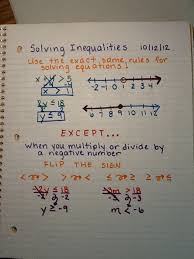 Solving Inequalities 10/12/12
Use the exact same rules for
solving equations!
x > 3
-2 -1 0 1 2 3 4
2y ≤ 18
y ≤ 9
6 7 8 9 10 11 12
EXCEPT...
when you multiply or divide by
a negative number
FLIP THE SIGN
-2y ≤ 18
-2 -2
y ≥ -9
-3m > 18
-3 -3
m < -6